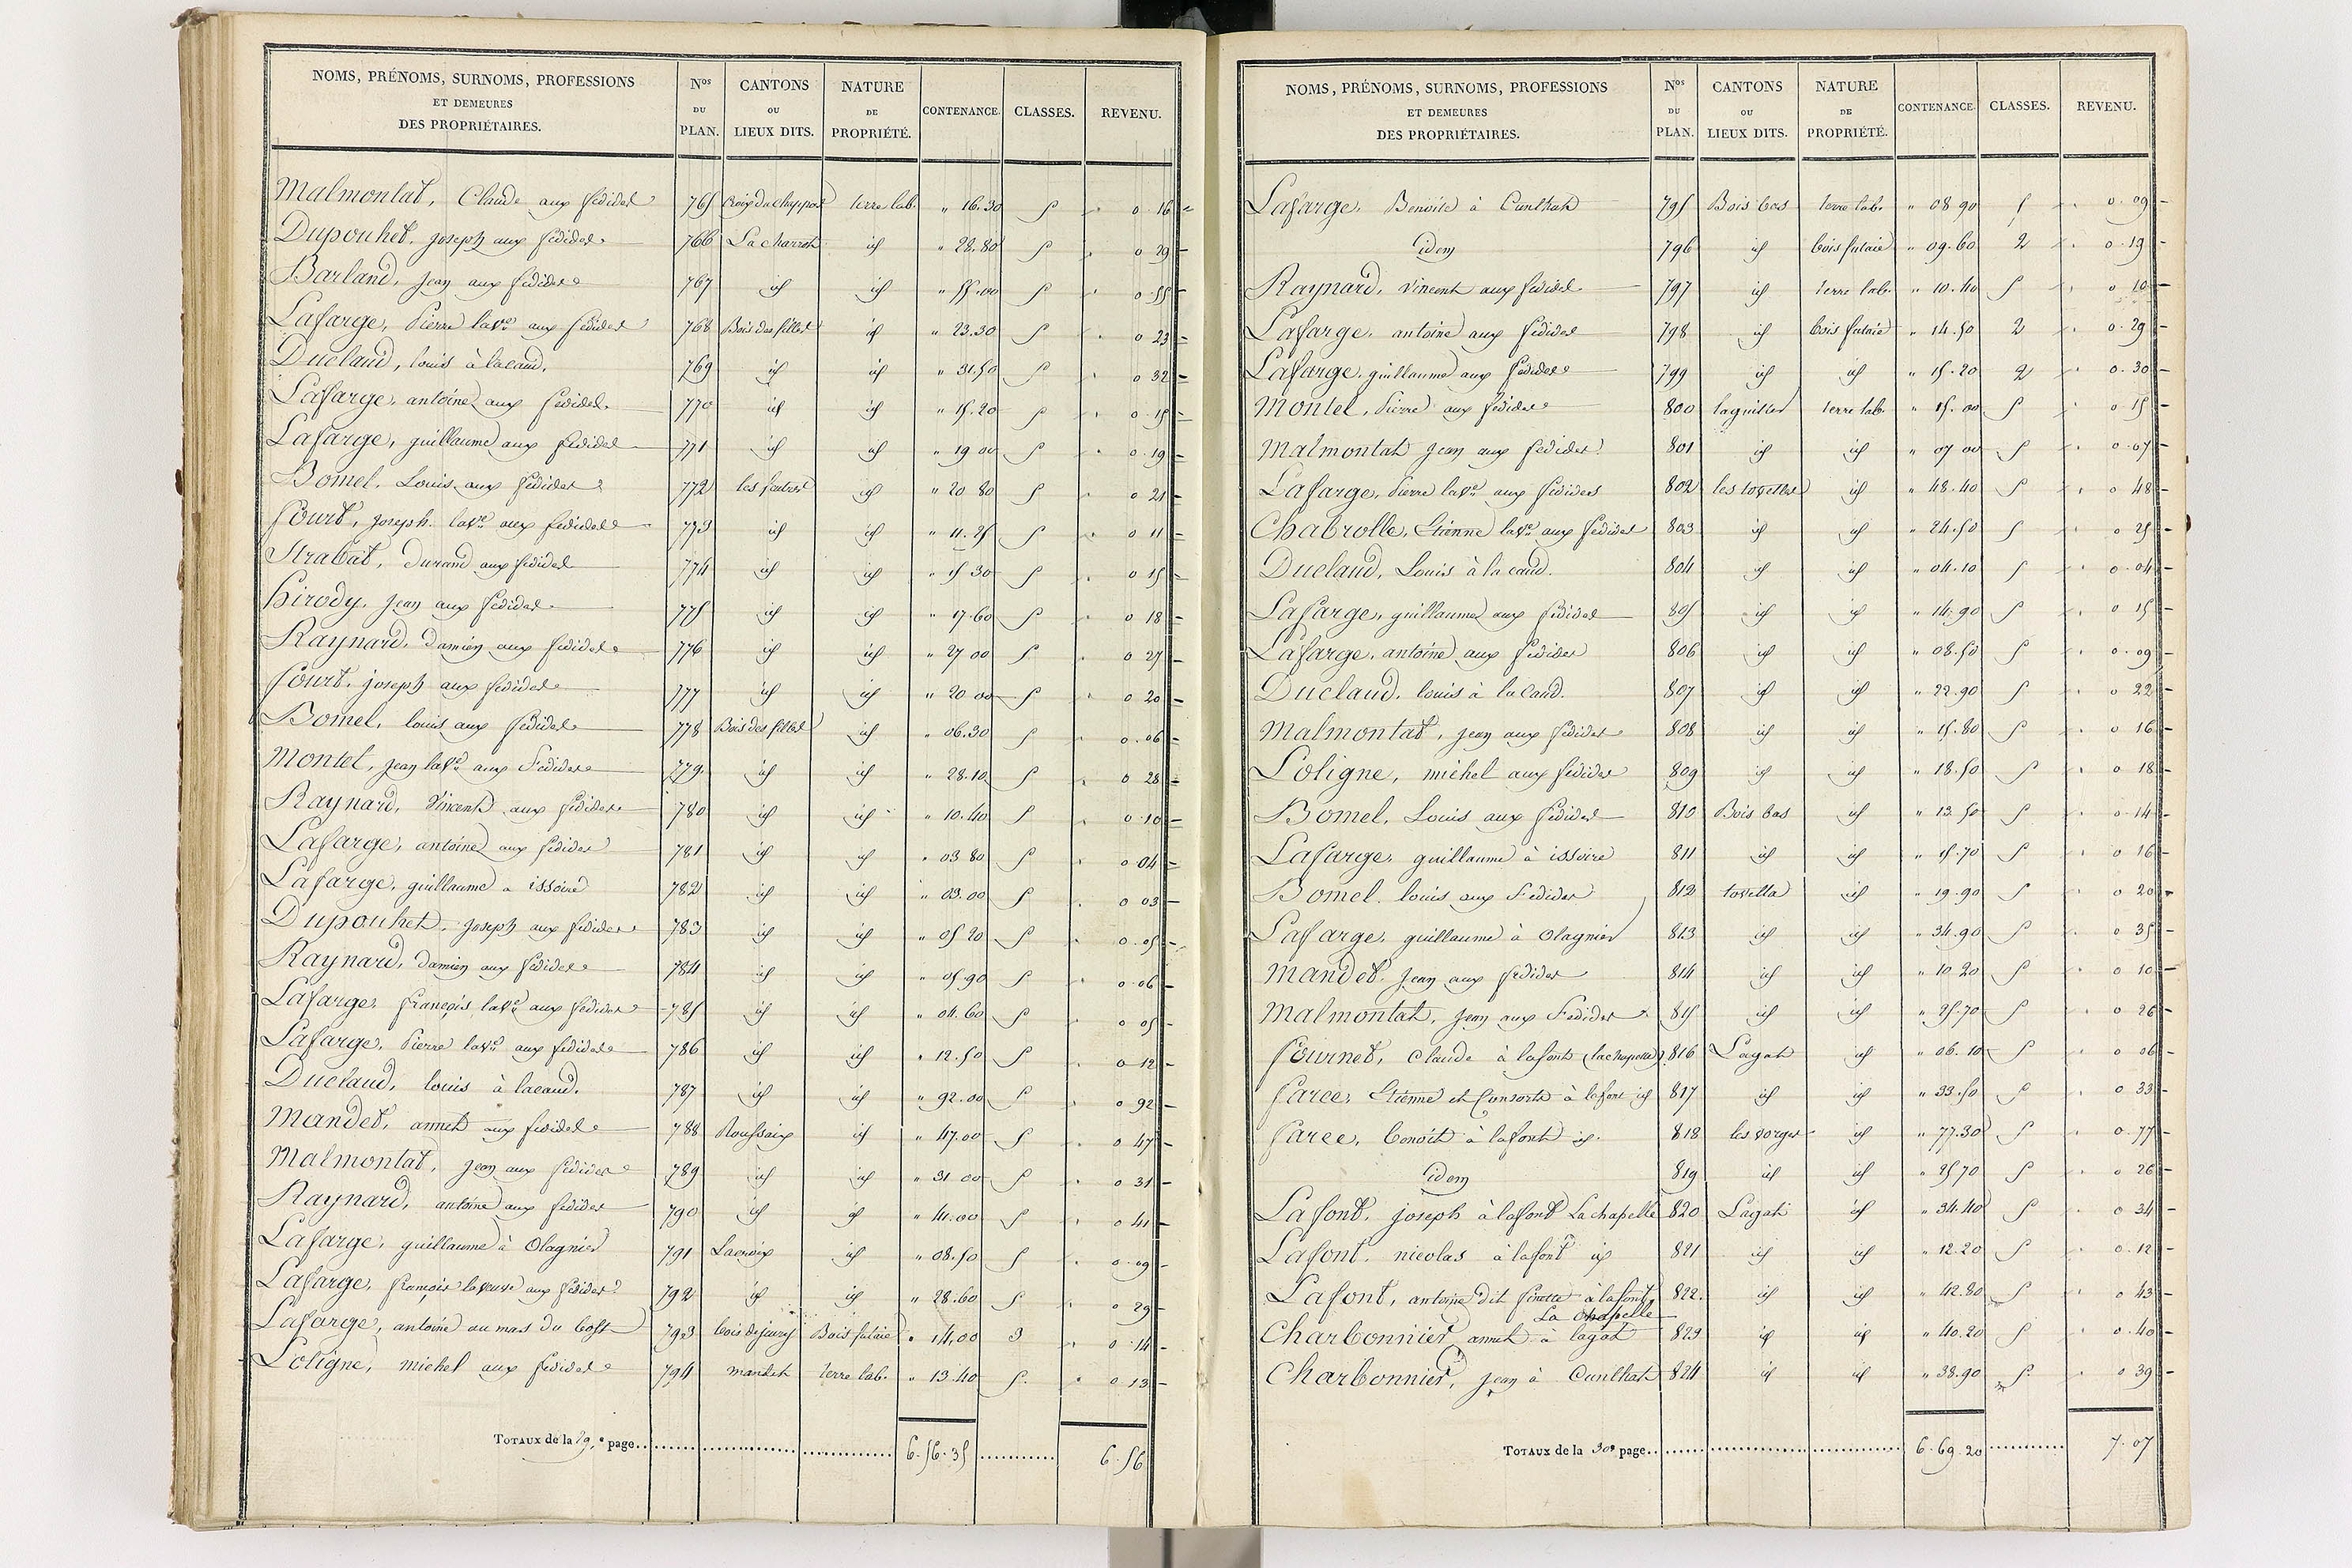 NOMS, PRÉNOMS, SURNOMS, PROFESSIONS ET DEMEURES DES PROPRIÉTAIRES. Nos DU PLAN. CANTONS OU LIEUX DITS. NATURE DE PROPRIÉTÉ. CONTENANCE. CLASSES. REVENU.
Malmontat, Claude aux fédides 765 terre lab. " 16.30 5 0 16
Dupouhet, joseph aux fédides 766 La charrot id " 28.80 5 0 29
Barland, jean aux fédides 767 id id " 55.00 5 0 55
Lafarge, Pierre lave aux fédides 768 Bois des filles id " 23.30 5 0 23
Duclaud, louis à lacaud. 769 id id " 31.50 5 0 32
Lafarge, antoine aux fédides 770 id id " 15.20 5 0 15
Lafarge, guillaume aux fédides 771 id id " 19 00 5 0 19
Bomel, Louis aux fédides 772 id " 20 80 5 0 21
Court, joseph lave aux fédides 773 id id " 11.25 5 0 11
Strabat, durand aux fédides 774 id id " 15 30 5 0 15
hirody, jean aux fédides 775 id id " 17.60 5 0 18
Raynard, damien aux fédides 776 id id " 27 00 5 0 27
Court, joseph aux fédides 777 id id " 20 00 5 0 20
Bomel, louis aux fédides 778 Bois des filles id " 06.30 5 0.06
Montel, jean lave aux Fédides 779 id id " 28.10 5 0 28
Raynard, Vincent aux fédides 780 id id " 10.40 5 0 10
Lafarge, antoine aux fédides 781 id id " 03 80 5 0 04
Lafarge, guillaume a issoire 782 id id " 03.00 5 0 03
Dupouhet, joseph aux fédides 783 id id " 05 20 5 0.05
Raynard, damien aux fédides 784 id id " 05.90 5 0.06
Lafarge, françois lave aux fédides 785 id id " 04.60 5 0 05
Lafarge, Pierre lave aux fédides 786 id id " 12.50 5 0 12
Duclaud, louis à lacaud. 787 id id " 92.00 5 0 92
Mandet, annet aux fédides 788 Roussaix id " 47.00 5 0 47
Malmontat, jean aux fédides 789 id id " 31 00 5 0 31
Raynard, antoine aux fédides 790 id id " 41.00 5 0 41
Lafarge, guillaume à Olagnier 791 Lacroix id " 08.50 5 0.09
Lafarge, françois laveuve aux fédides 792 id id " 28.60 5 0 29
Lafarge, antoine au mas du bost 793 Bois futaie " 14,00 3 0 14
Coligne, michel aux fédides 794 mandet terre lab. " 13.40 5. 0 13
TOTAUX de la 29.e page 6.56.35 6.56
NOMS, PRÉNOMS, SURNOMS, PROFESSIONS ET DEMEURES DES PROPRIÉTAIRES. Nos DU PLAN. CANTONS OU LIEUX DITS. NATURE DE PROPRIÉTÉ. CONTENANCE. CLASSES. REVENU.
Lafarge, Benoite à Cunlhat 795 Bois bas terre lab. " 08 90 5 0.09
idem 796 id bois futaie " 09.60 2 0.19
Raynard, vincent aux fédides 797 id terre lab. " 10.40 5 0 10
Lafarge, antoine aux fédides 798 id bois futaie " 14.50 2 0.29
Lafarge, guillaume aux fédides 799 id id " 15.20 2 0.30
Montel, Pierre aux fédides 800 terre lab. " 15.00 5 0 15
Malmontat jean aux fédides 801 id id " 07 00 5 0.07
Lafarge, Pierre lave aux fédides 802 id " 48.40 5 0 48
Chabrolle, Etienne lave aux fédides 803 id id " 24.50 5 0 25
Duclaud, Louis à lacaud. 804 id id " 04.10 5 0.04
Lafarge, guillaume aux fédides 805 id id " 14.90 5 0 15
Lafarge, antoine aux fédides 806 id id " 08.50 5 0.09
Duclaud, louis à lacaud. 807 id id " 22.90 5 0 22
Malmontat, jean aux fédides 808 id id " 15.80 5 0 16
Coligne, michel aux fédides 809 id id " 18.50 5 0 18
Bomel, Louis aux fédides 810 Bois bas id " 13.50 5 0.14
Lafarge, guillaume à issoire 811 id id " 15.70 5 0 16
Bomel, louis aux Fédides 812 id " 19.90 5 0 20
Lafarge, guillaume à Olagnier 813 id id " 34.90 5 0 35
Mandet, jean aux fédides 814 id id " 10 20 5 0 10
Malmontat, jean aux Fédides 815 id id " 25.70 5 0 26
fournet, claude à lafont (lachapelle) 816 Lagat id " 06.10 5 0 06
farce, Etienne et Consorts à lafont id 817 id id " 33.50 5 0 33
farce, benoit à lafont id. 818 les vorges id " 77.30 5 0.77
idem 819 id id " 25.70 5 0 26
Lafont, joseph à lafont Lachapelle 820 Lagat id " 34.40 5 0 34
Lafont, nicolas à lafont id 821 id id " 12.20 5 0.12
Lafont, antoine dit finette à lafont 822. id id " 42.80 5 0 43
La chapelle
Charbonnier annet à lagat 823 id id " 40.20 5 0.40
Charbonnier, jean à Cunlhat 824 id id " 38.90 5 0 39
TOTAUX de la 30e page 6.69.20 7.07